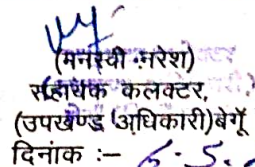 (मनस्वी नरेश)
सहायक कलक्टर,
(उपखण्ड अधिकारी) बेगूँ
दिनांक :- 6.5.